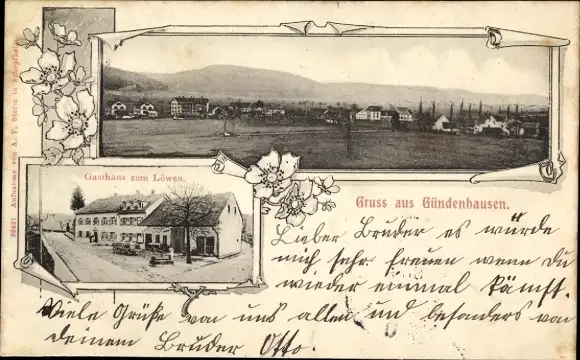 Gasthaus zum Löwen.
Gruss aus Gündenhausen.
Lieber Bruder es würde
mich sehr freuen wenn du
wieder einmal kämst.
Viele Grüße von uns allen und besonders von
deinem Bruder Otto.
Aufnahme von A. F. Sturm in Schopfheim